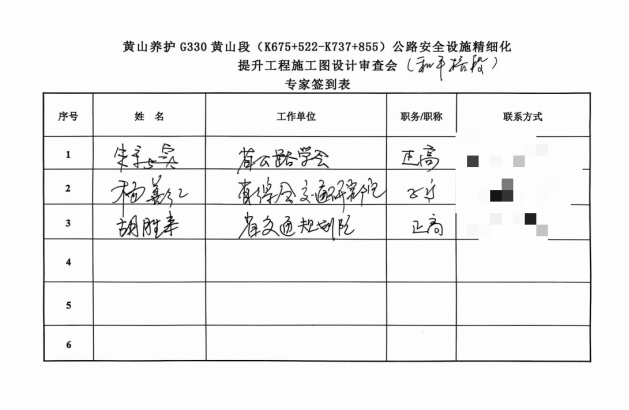 黄山养护 G330 黄山段（K675+522-K737+855）公路安全设施精细化
提升工程施工图设计审查会（和平桥段）
专家签到表
序号 姓 名 工作单位 职务/职称 联系方式
1 省公路学会 正高
2 杨 省 交通研究院
3 胡胜来 省交通规划院 正高
4
5
6